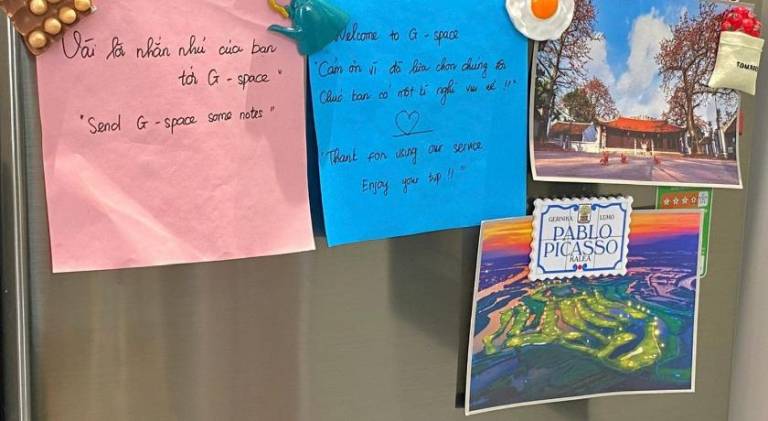 Vài lời nhắn nhủ của bạn
tới G - space"
"Send G - space some notes"
Welcome to G - space
"Cảm ơn vì đã lựa chọn chúng tôi
Chúc bạn có một kì nghỉ vui vẻ !!"
"Thank for using our service
Enjoy your trip !!"
GERNIKA LUMO
PABLO
PICASSO
KALEA